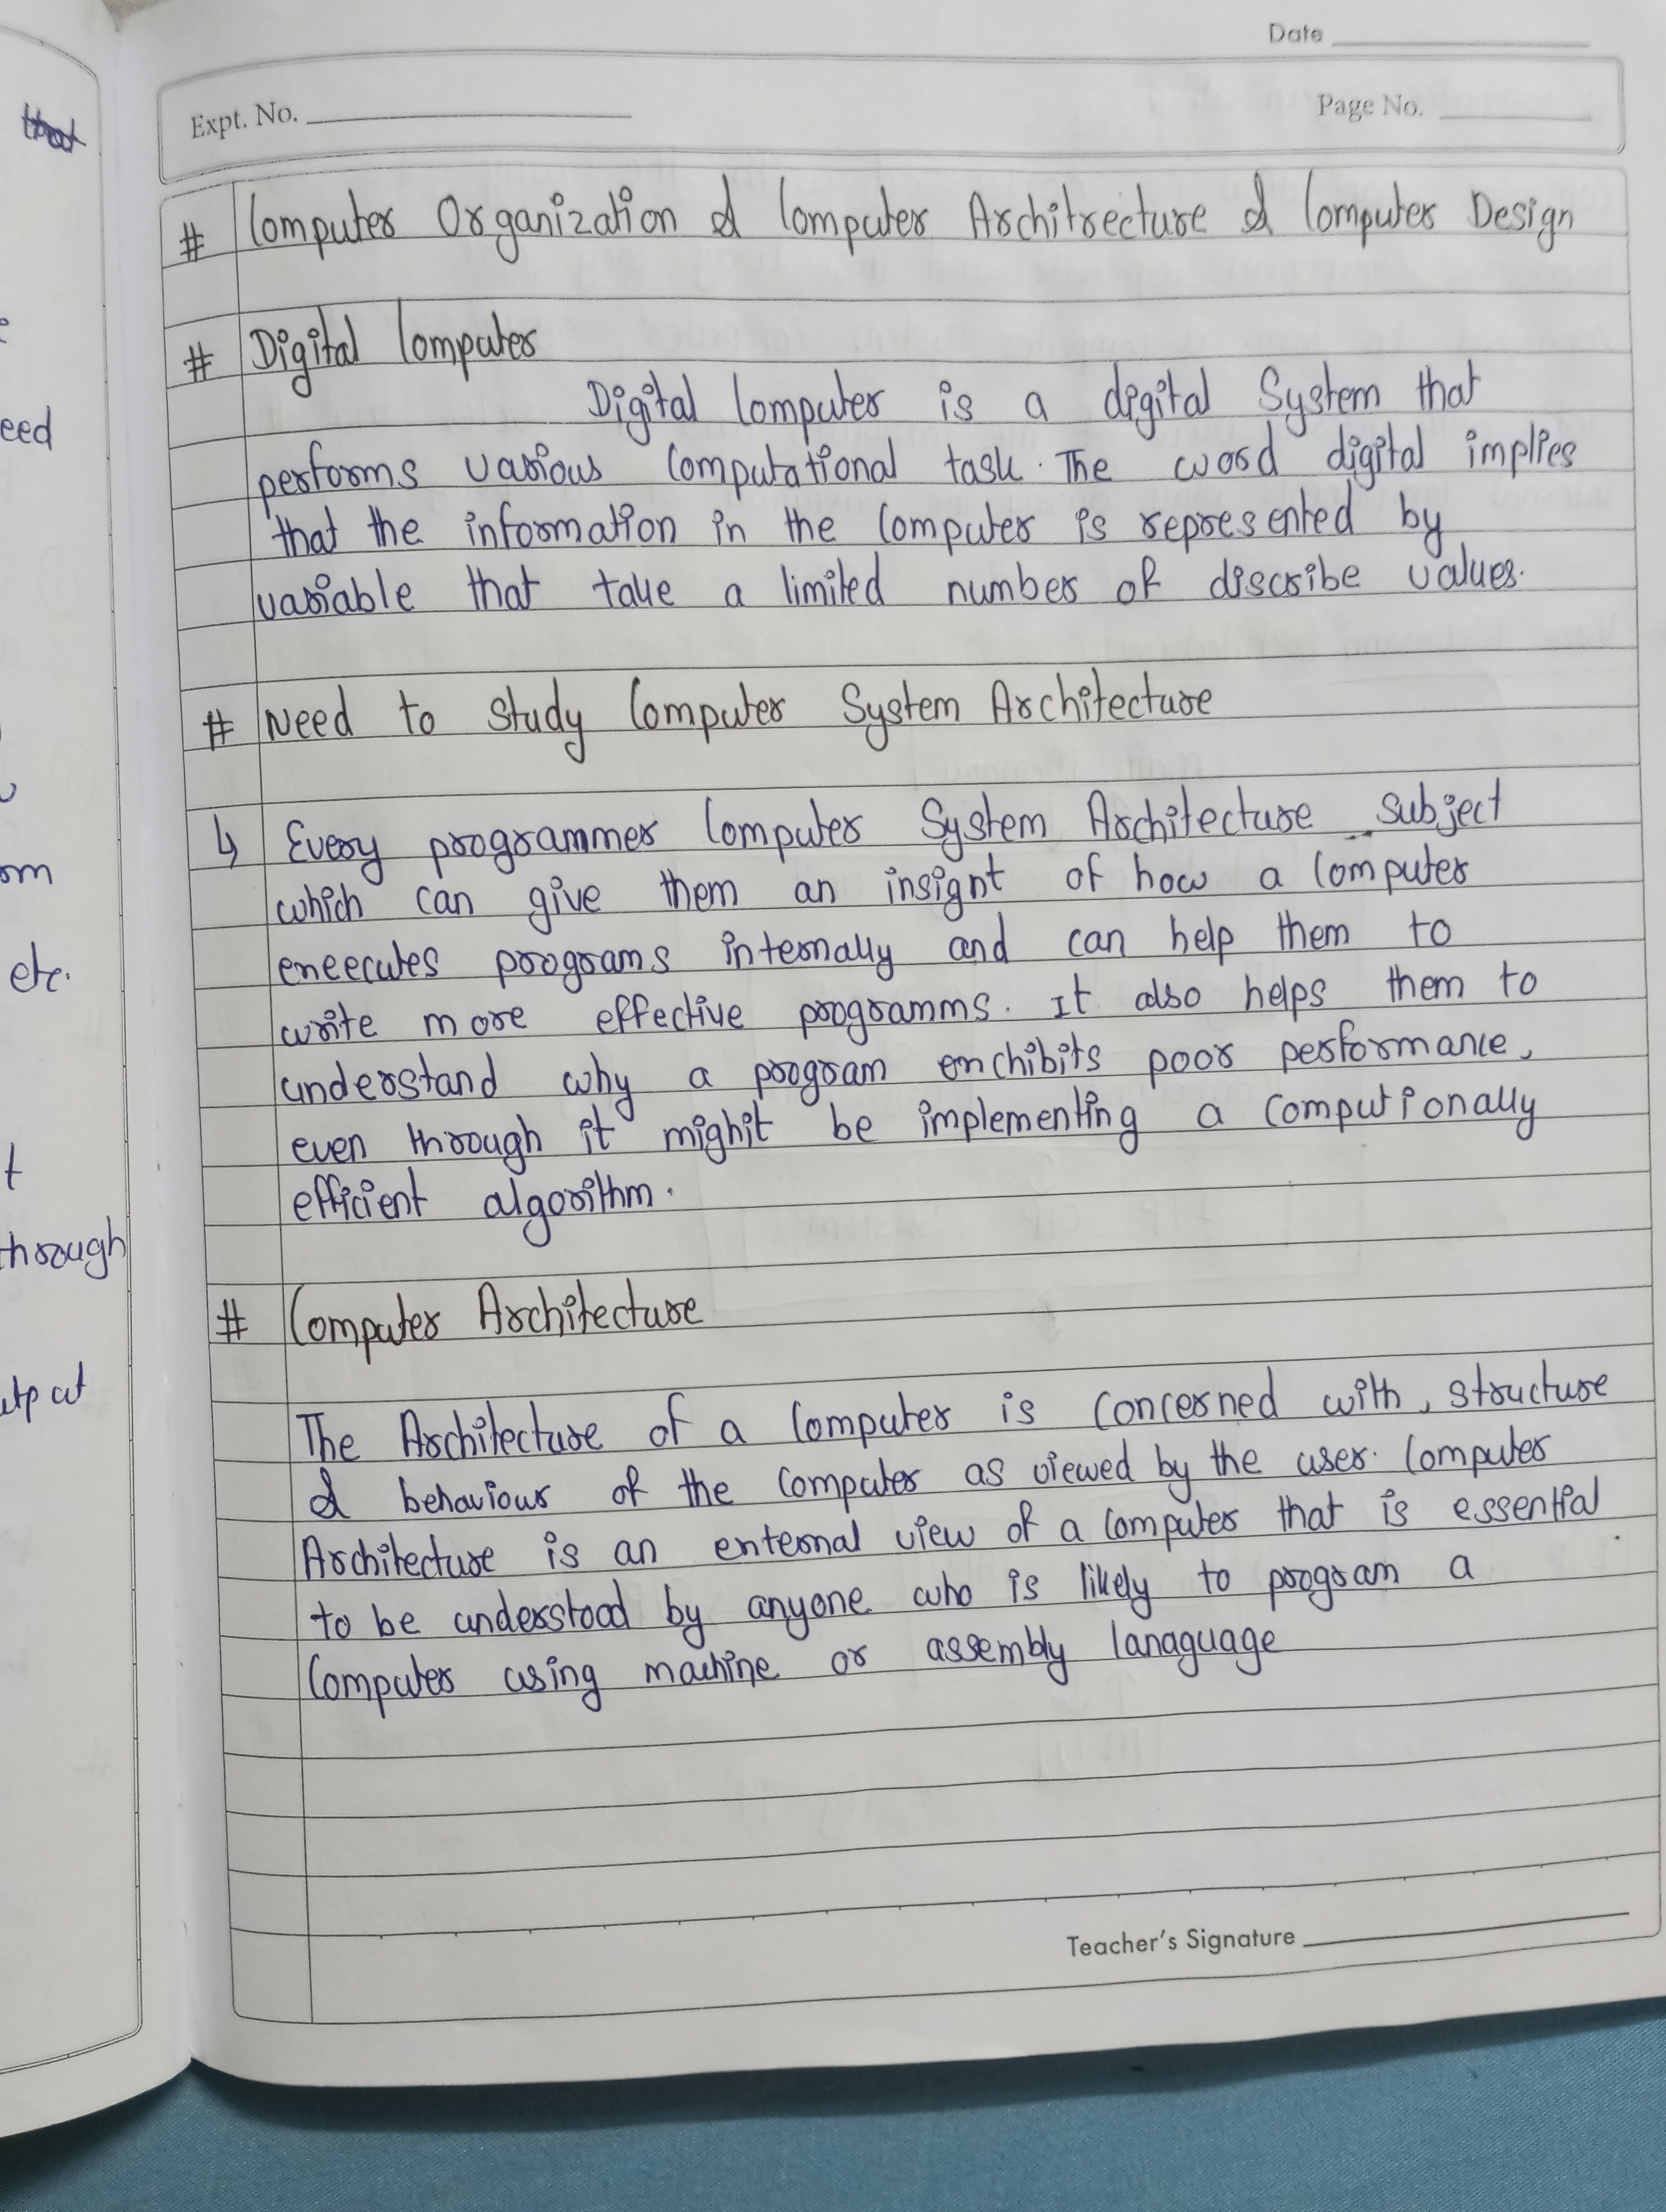 that
eed
om
etc.
t
hrough
utput
Date
Expt. No.
Page No.
# Computer Organization & Computer Architrecture & Computer Design
# Digital Computer
Digital Computer is a digital System that
performs various Computational task. The word digital implies
that the information in the Computer is represented by
variable that take a limited number of discribe values.
# Need to study Computer System Architecture
↳ Every programmer Computer System Architecture subject
which can give them an insignt of how a Computer
eneecutes programs internally and can help them to
write more effective programms. It also helps them to
understand why a program enchibits poor performance,
even through it mighit be implementing a Computionally
efficient algorithm.
# Computer Architecture
The Architecture of a Computer is Concerned with, structure
& behaviour of the Computer as viewed by the user. Computer
Architecture is an enternal view of a Computer that is essential
to be understood by anyone who is likely to program a
Computer using machine or assembly lanaguage
Teacher's Signature